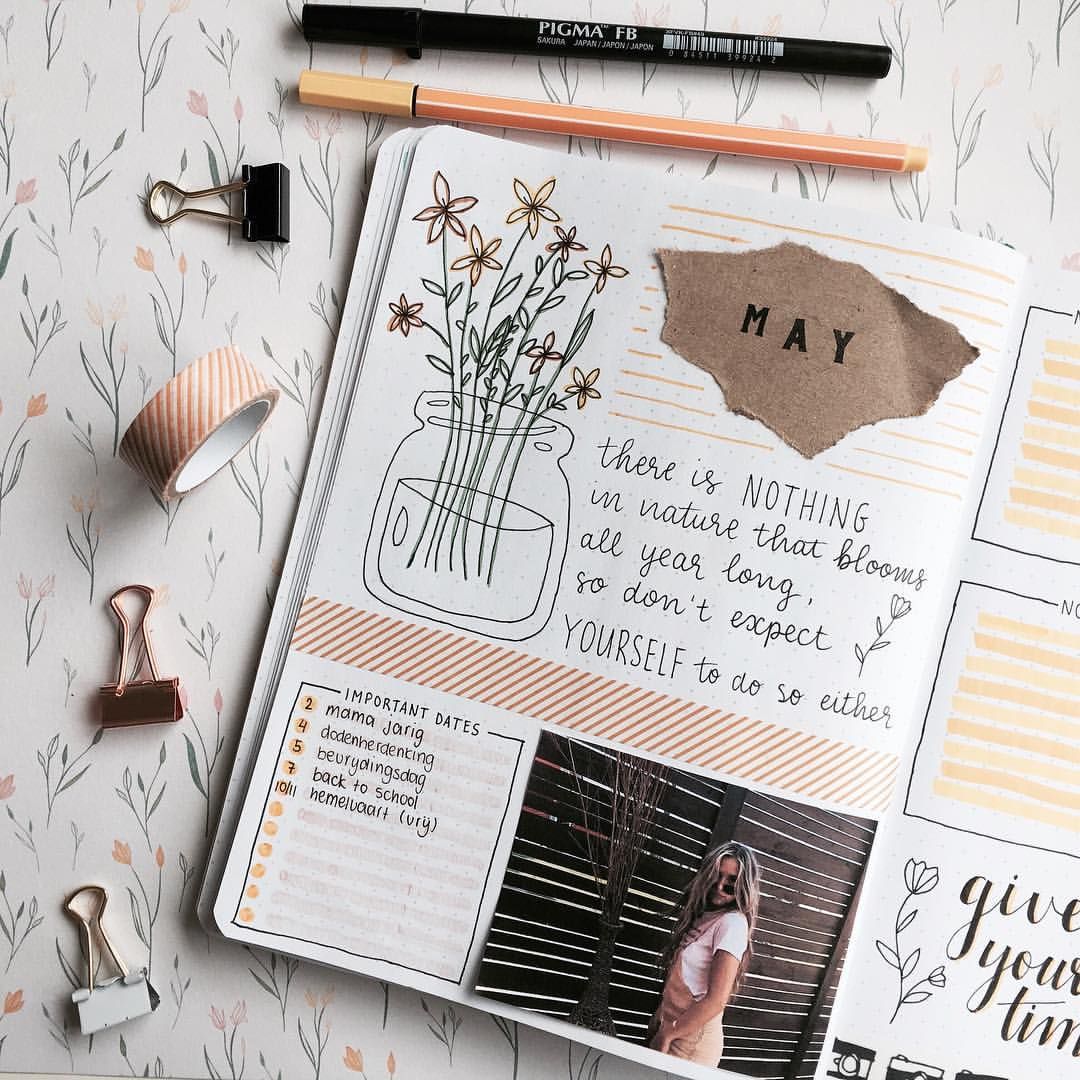 PIGMA™ FB
SAKURA JAPAN / JAPON / JAPÓN
0 84511 39924 2
MAY
there is NOTHING
in nature that blooms
all year long,
so don't expect
YOURSELF to do so either
IMPORTANT DATES
2 mama jarig
4 dodenherdenking
5 bevrijdingsdag
7 back to school
10/11 hemelvaart (vrij)
give
your